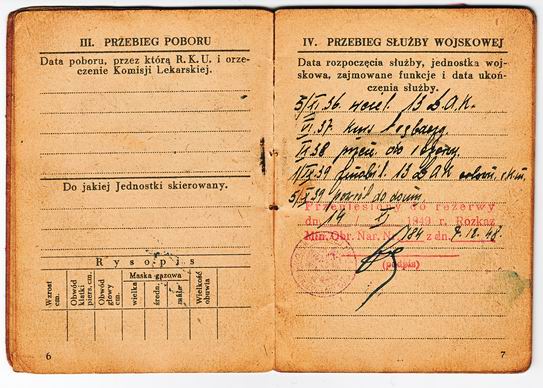 III. PRZEBIEG POBORU
Data poboru, przez którą R. K. U. i orze-
czenie Komisji Lekarskiej.
Do jakiej Jednostki skierowany.
Rysopis
Wzrost cm.
Obwód klatki piers. cm.
Obwód głowy cm.
Maska gazowa
wielka
średn.
mała
Wielkość obuwia
6
IV. PRZEBIEG SŁUŻBY WOJSKOWEJ
Data rozpoczęcia służby, jednostka woj-
skowa, zajmowane funkcje i data ukoń-
czenia służby.
3/XI.36. wciel. 13 D.A.K.
VI.37. kurs
IX.38 przen. do rezerwy
1/IX.39 zmobil. 13 D.A.K.
5/X.39 powrót do domu
Przeniesiony do rezerwy
dn. 14 XI 1949 r. Rozkaz
Min. Obr. Nar. N 184 z dn. 7.12.48.
(podpis)
7